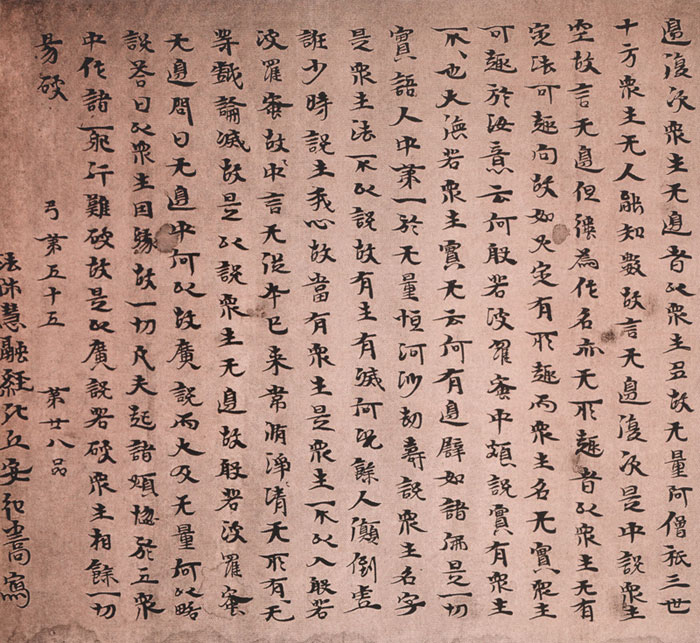 邊復次衆生无邊者以衆生多故无量阿僧祇三世
十方衆生无人能知數故言无邊復次是中說衆生
空故言无邊但強為作名亦无所趣者以衆生无有
定法可趣向故如火定有所趣而衆生名无實衆生
可趣於汝意云何般若波羅蜜中頗說實有衆生
不〻也大德若衆生實无云何有邊辟如諸佛是一切
實語人中第一於无量恒河沙劫壽說衆生名字
是衆生法不以說故有生有滅何況餘人顛倒虛
誑少時說生我心故當有衆生是衆生不以入般若
波羅蜜故中言无從本已来常清淨无所有无
等戲論滅故是以說衆生无邊故般若波羅蜜
无邊問曰无邊中何以故廣說而大及无量何以略
說荅曰以衆生因緣故一切凡夫起諸煩惱於五衆
中作諸耶行難破故是以廣說若破衆生相餘一切
易破
弓第五十五 第廿八品
法師慧融經比丘安弘嵩寫